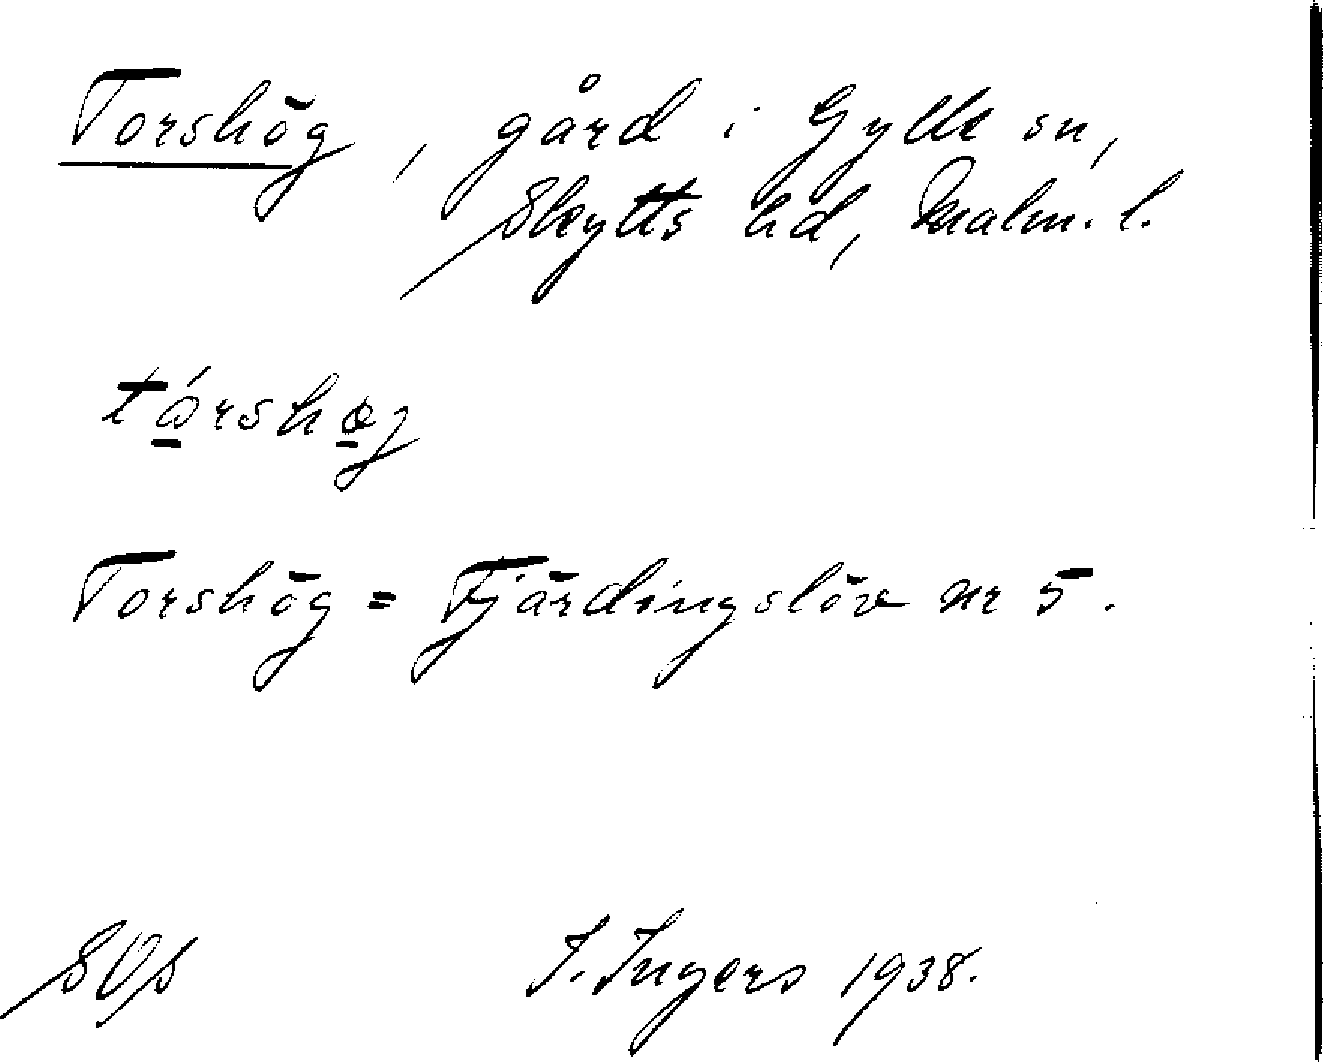 Torshög, gård i Gylle sn,
Skytts hd, Malm. l.
tórshøj
Torshög = Fjärdingslöv nr 5.
SOS
I. Ingers 1938.